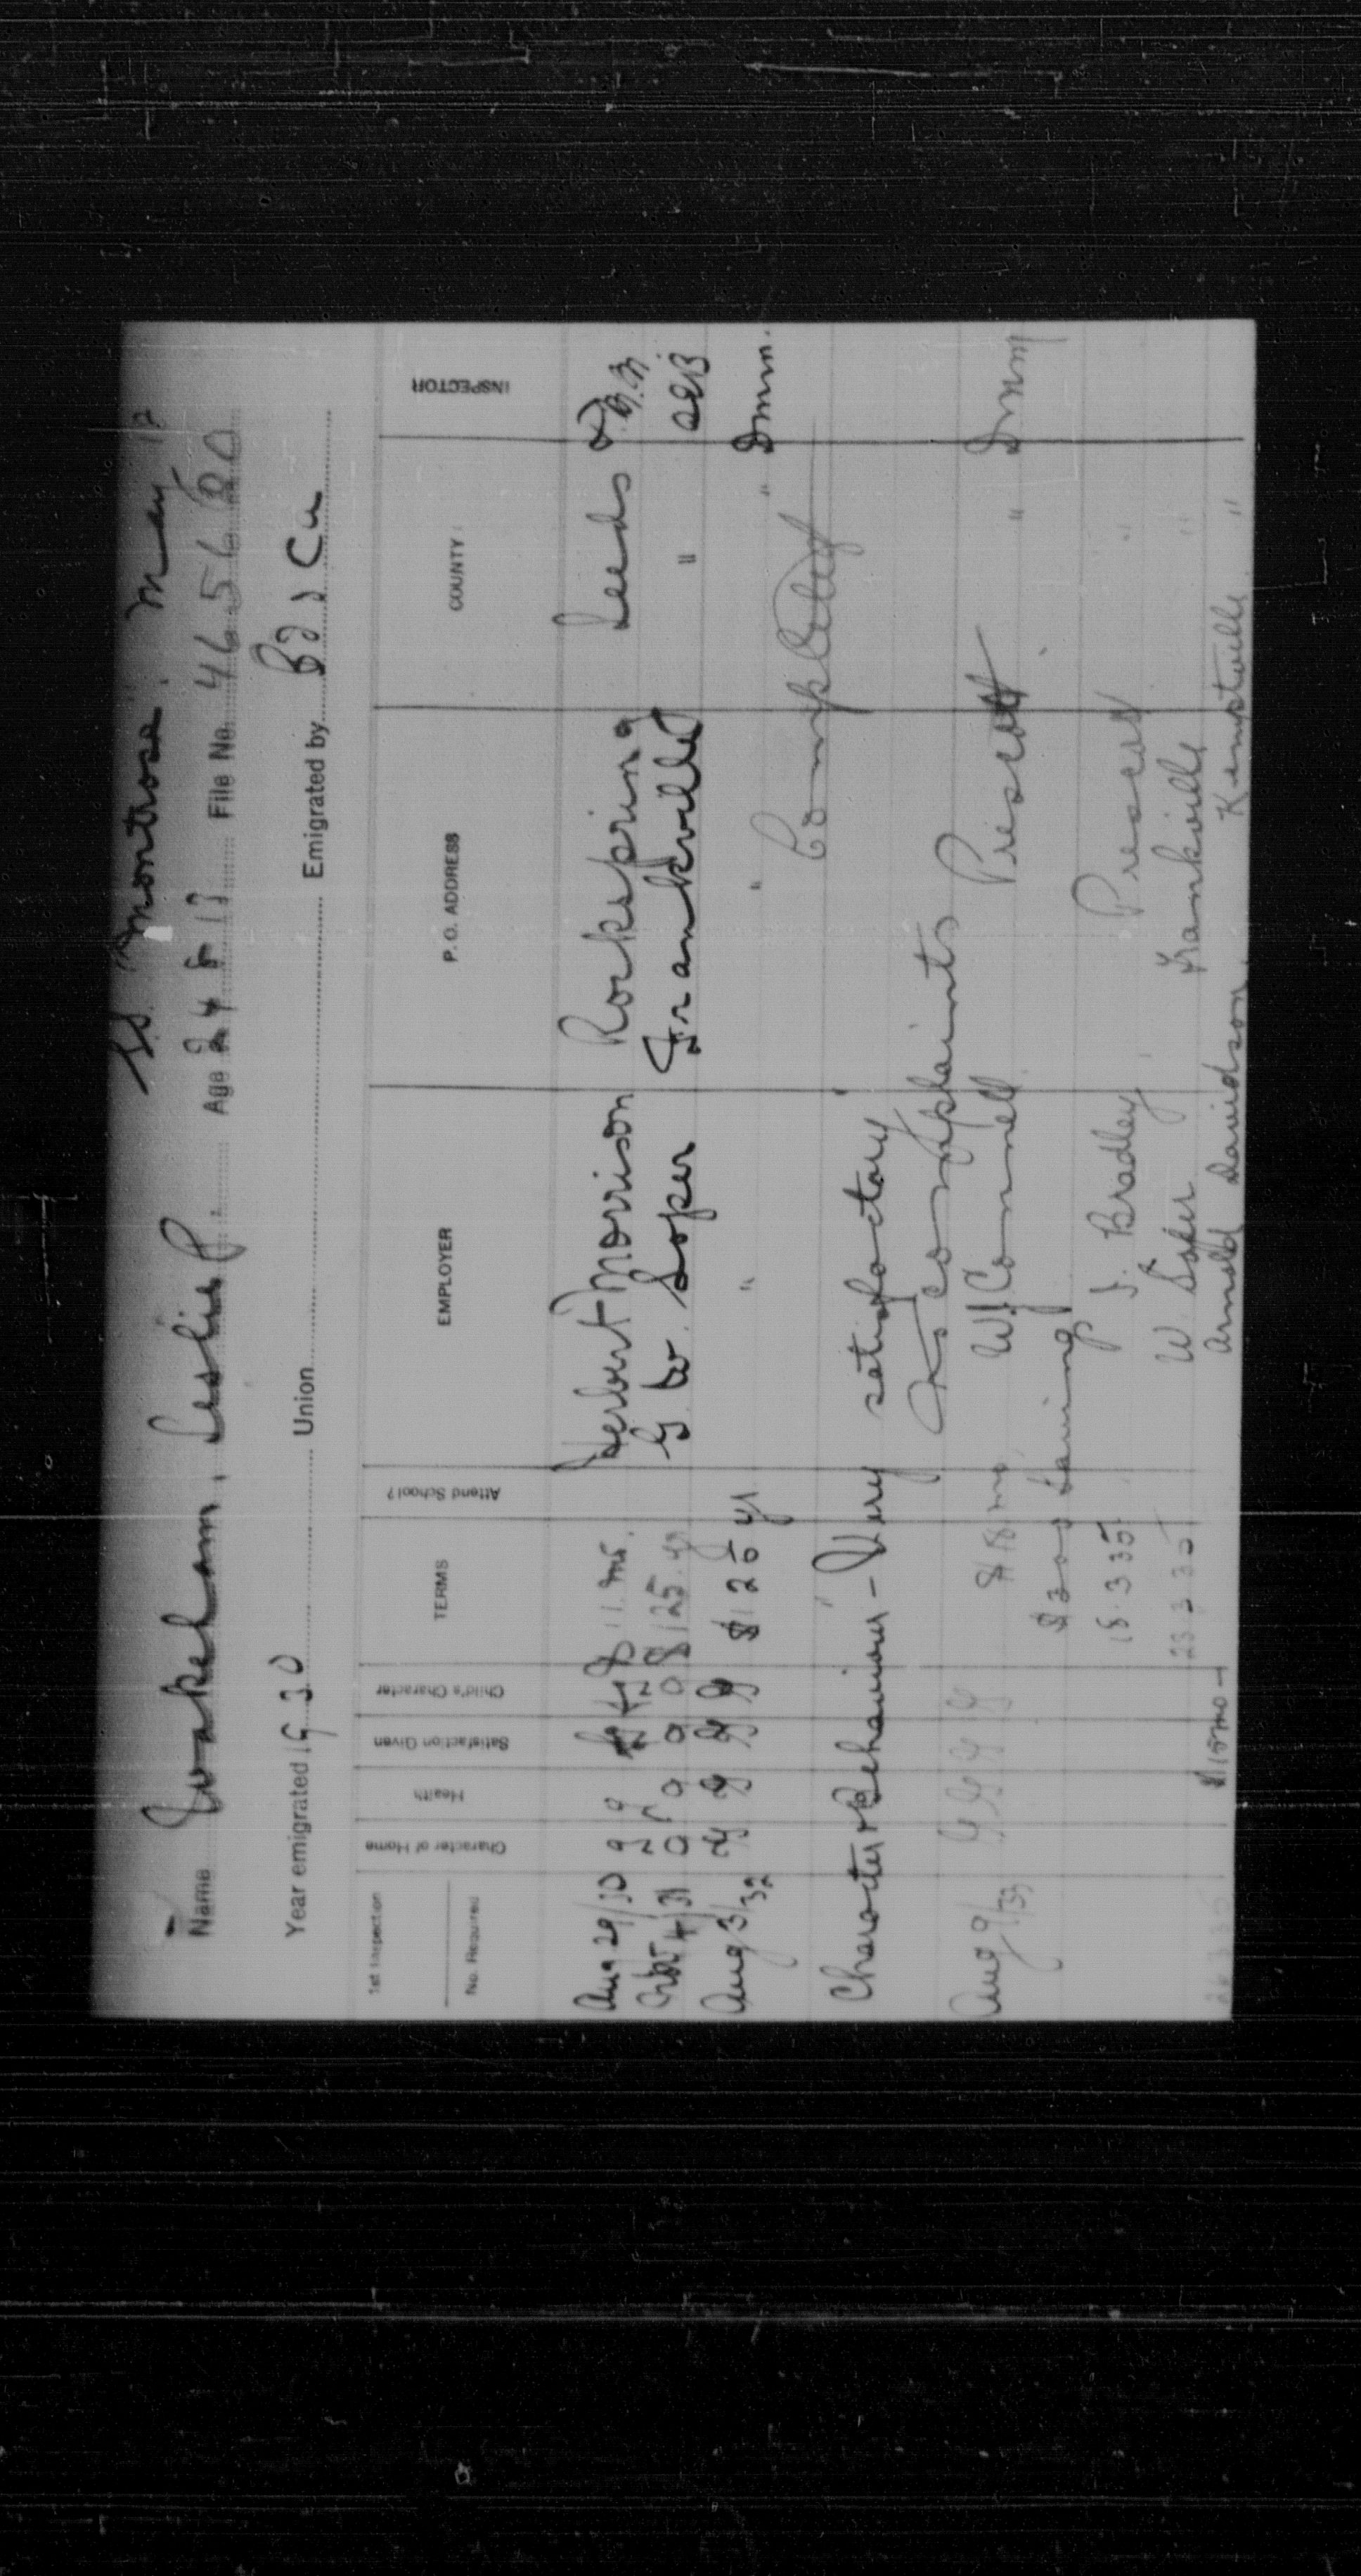 SS. "Montrose" May
Name Wakeham, Leslie P. Age 17 File No. 465680
Year emigrated 1930 Union Emigrated by
1st Inspection
No. Required
Character of Home
Health
Satisfaction Given
Child's Character
TERMS
Attend School?
EMPLOYER
P. O. ADDRESS
COUNTY
INSPECTOR
Aug 29/30 g g $11. mo. Herbert Morrison Rockspring Leeds
4/31 0 0 0 0 $125. yr G W Soper Frankville "
Aug 3/32 g g g g $120 yr " " " DMM.
Completed
Character & Behaviour - Very satisfactory
No complaints
Aug 9/33 g g g g mo. W. J. Connell Prescott " DMM
Saving
18.3.35 J. Bradley Prescott "
23.3.35 W. Soper Frankville "
$15 mo - Arnold Davidson Kemptville "